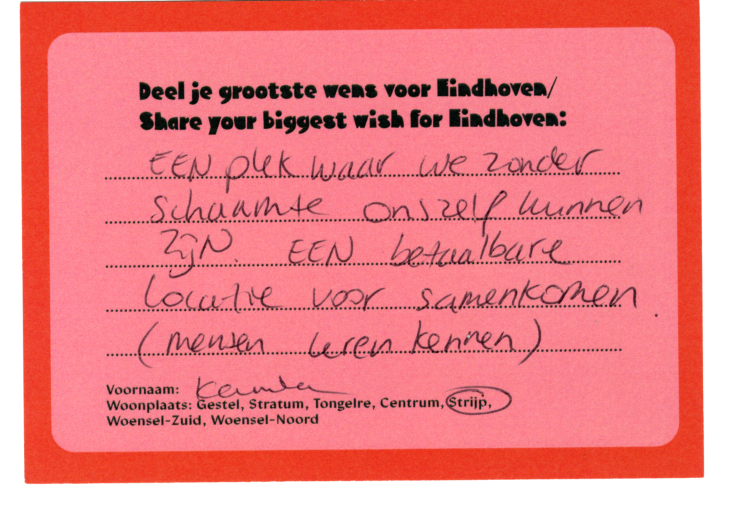 Deel je grootste wens voor Eindhoven/
Share your biggest wish for Eindhoven:
EEN plek waar we zonder
schaamte onszelf kunnen
zijn. EEN betaalbare
locatie voor samenkomen
(mensen leren kennen)
Voornaam:
Woonplaats: Gestel, Stratum, Tongelre, Centrum, Strijp,
Woensel-Zuid, Woensel-Noord